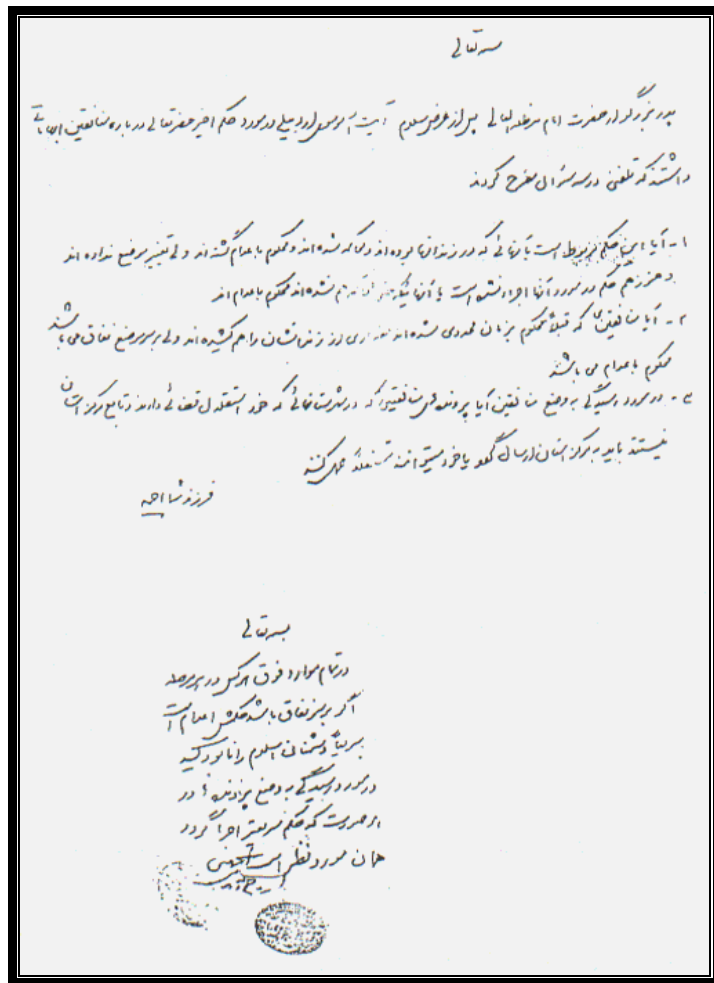 بسمه تعالی
پدر بزرگوار حضرت امام مدظله العالی پس از عرض سلام آیت الله موسوی اردبیلی در مورد حکم اخیر حضرتعالی درباره منافقین ابهاماتی
داشتند که تلفنی در سه سؤال مطرح کردند
۱- آیا این حکم مربوط است به آنهائی که در زندانها بوده‌اند و محاکمه شده‌اند و محکوم به اعدام گشته‌اند ولی تغییر موضع نداده‌اند
و هنوز هم حکم در مورد آنها اجرا نشده است یا آنهائیکه حتی محاکمه هم نشده‌اند محکوم به اعدام‌اند
۲- آیا منافقینی که قبلاً محکوم به زندان محدودی شده‌اند و مقداری از زندانشان را هم کشیده‌اند ولی بر سر موضع نفاق می‌باشند
محکوم به اعدام می باشند
۳- در مورد رسیدگی به وضع منافقین آیا پرونده های منافقینی که در شهرستانهائی که خود استقلال قضائی دارند و تابع مرکز استان
نیستند باید به مرکز استان ارسال گردد یا خود میتوانند مستقلاً عمل کنند
فرزند شما احمد
بسمه تعالی
در تمام موارد فوق هر کس در هر مرحله
اگر بر سر نفاق باشد حکمش اعدام است
سریعاً دشمنان اسلام را نابود کنید
در مورد رسیدگی به وضع پرونده ها در
هر صورت که حکم سریعتر اجرا گردد
همان مورد نظر است
روح الله الموسوی الخمینی